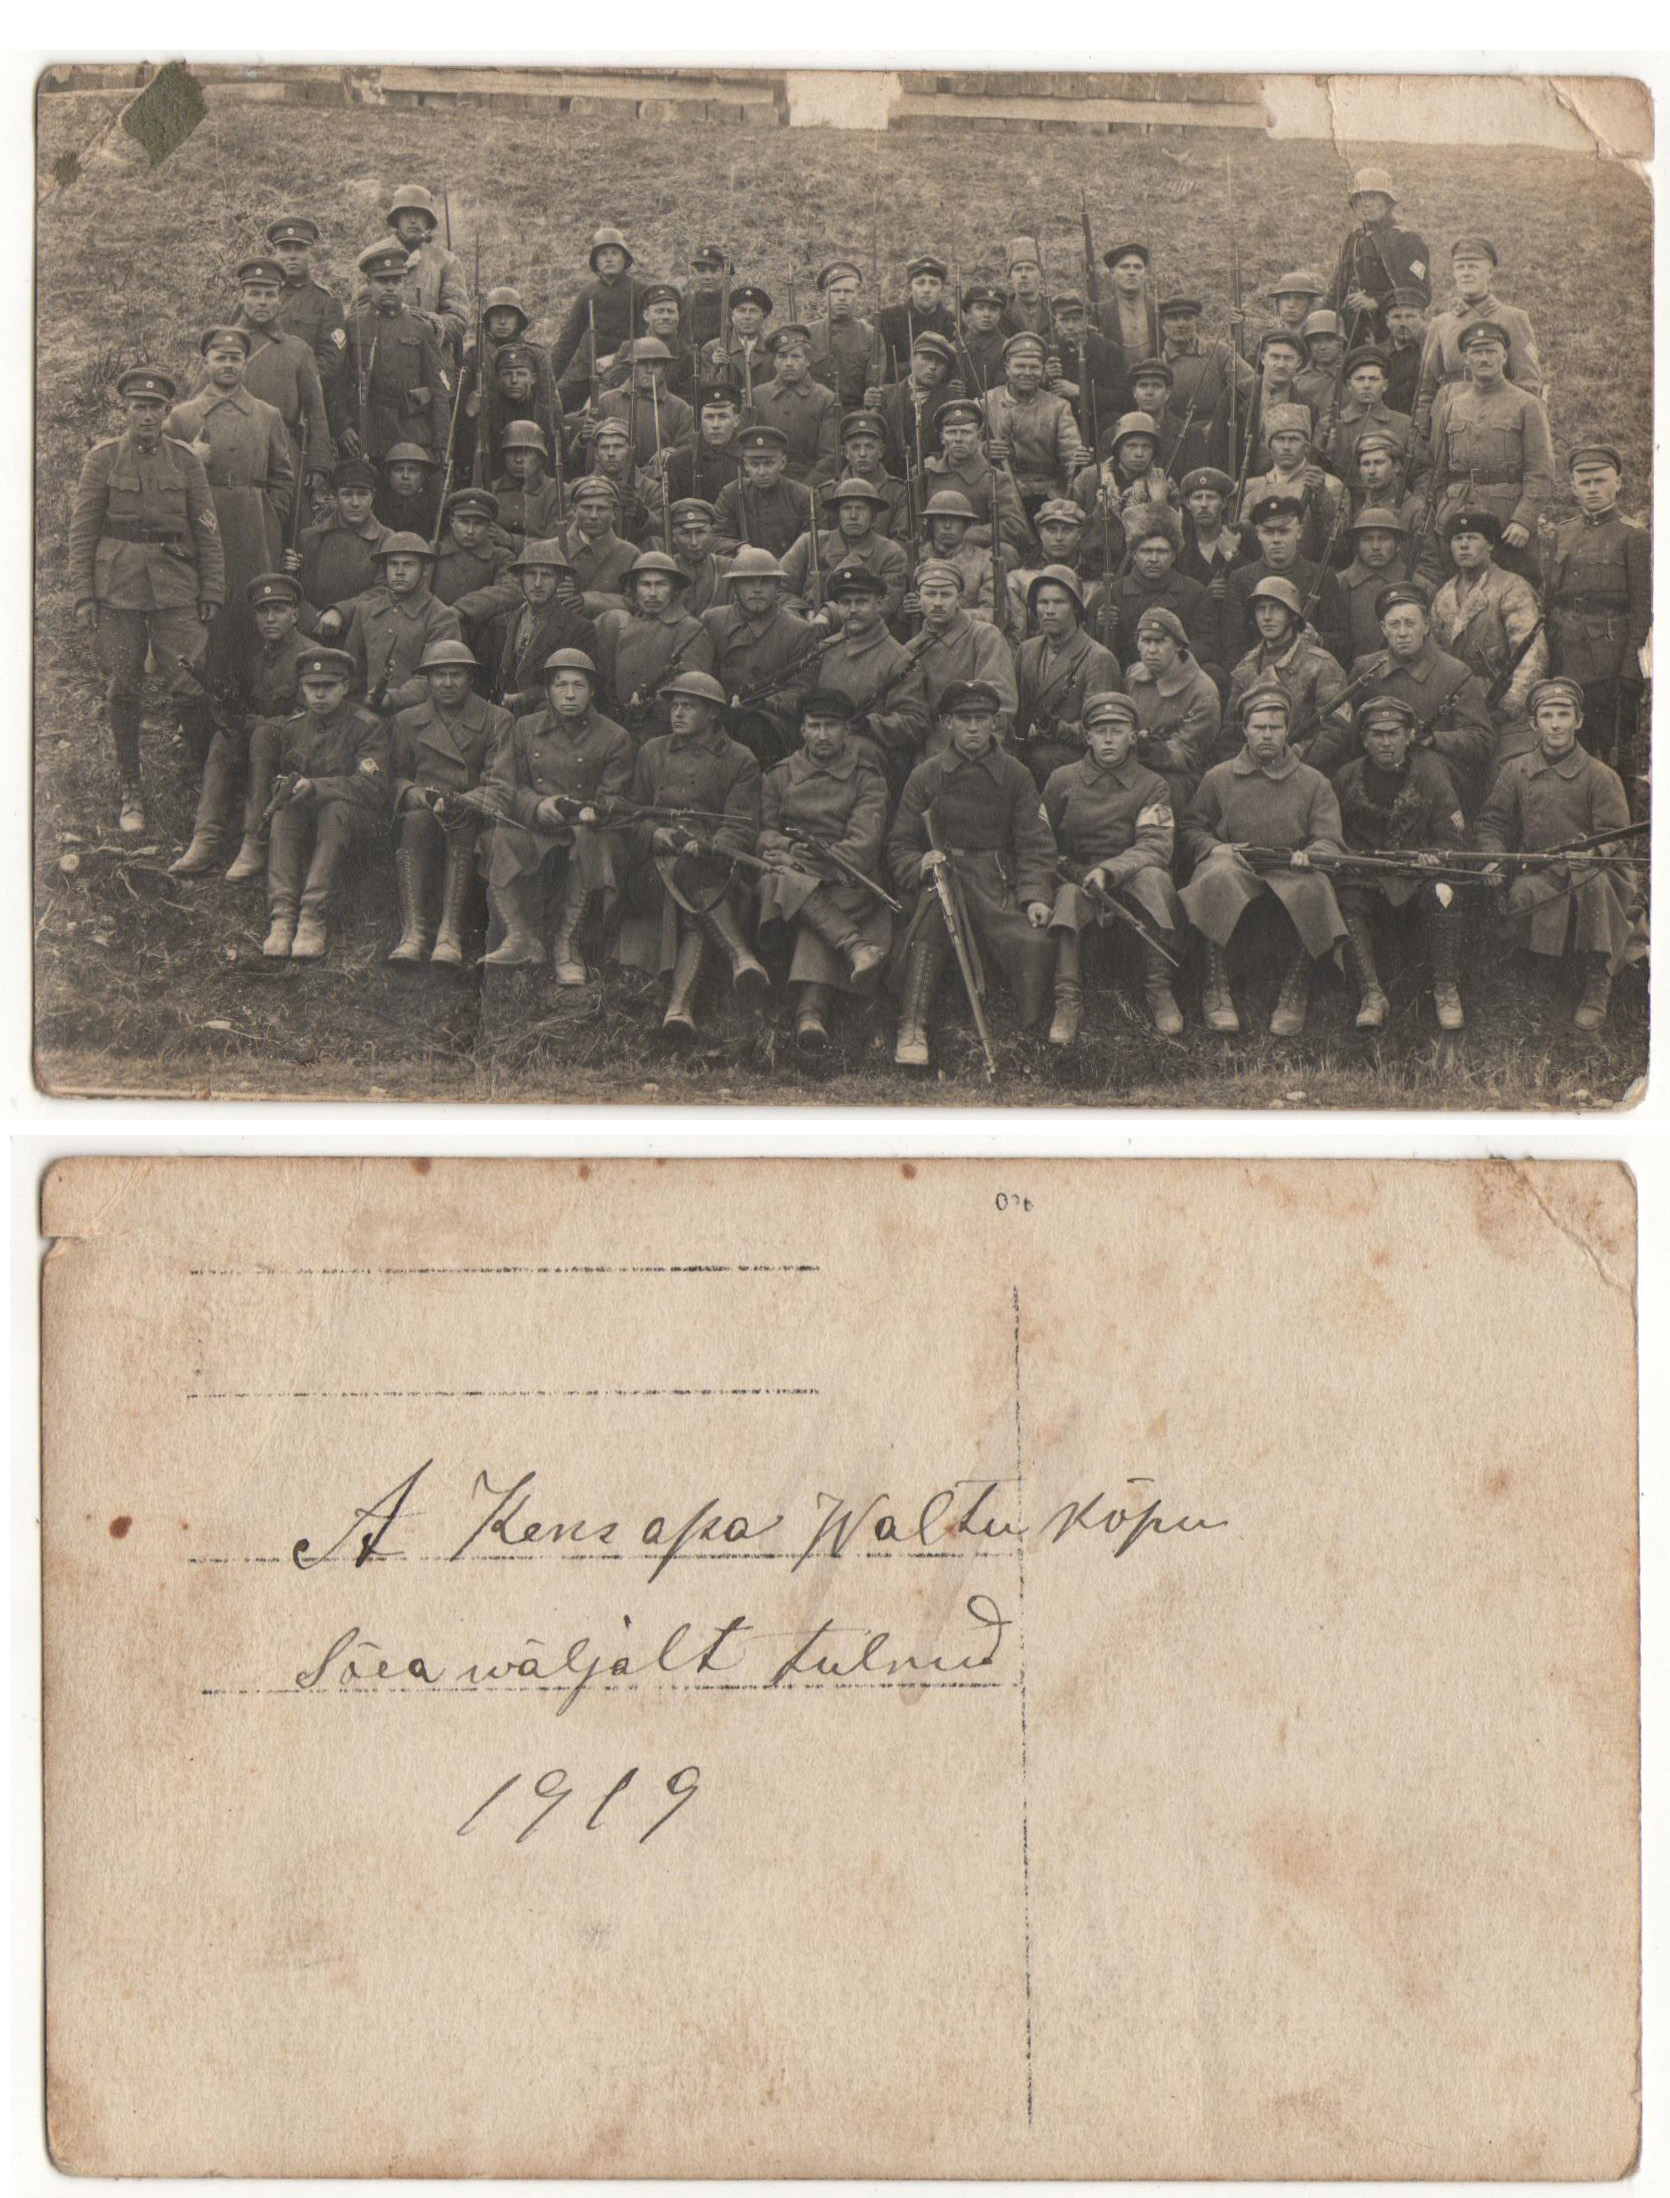 A Kens apa Waltu Kõpu
Sõea wäljalt tulnud
1919